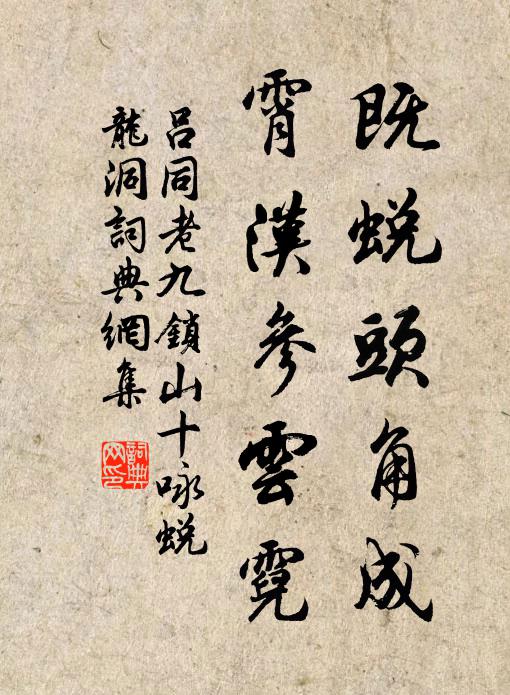 既蜕頭角成
霄漢參雲霓
呂同老九鎖山十咏蜕
龍洞詞典網集
詞典網印